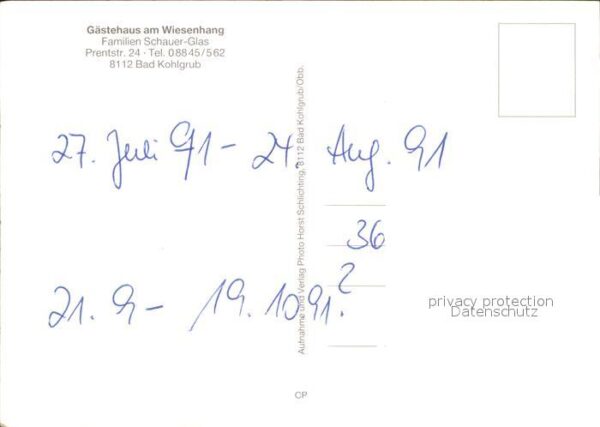 Gästehaus am Wiesenhang
Familien Schauer-Glas
Prentstr. 24 · Tel. 08845/562
8112 Bad Kohlgrub
27. Juli 91 - 24. Aug. 91
36
21. 9 - 19. 10 91.?
Aufnahme und Verlag Photo Horst Schlichting, 8112 Bad Kohlgrub/Obb.
privacy protection
Datenschutz
CP